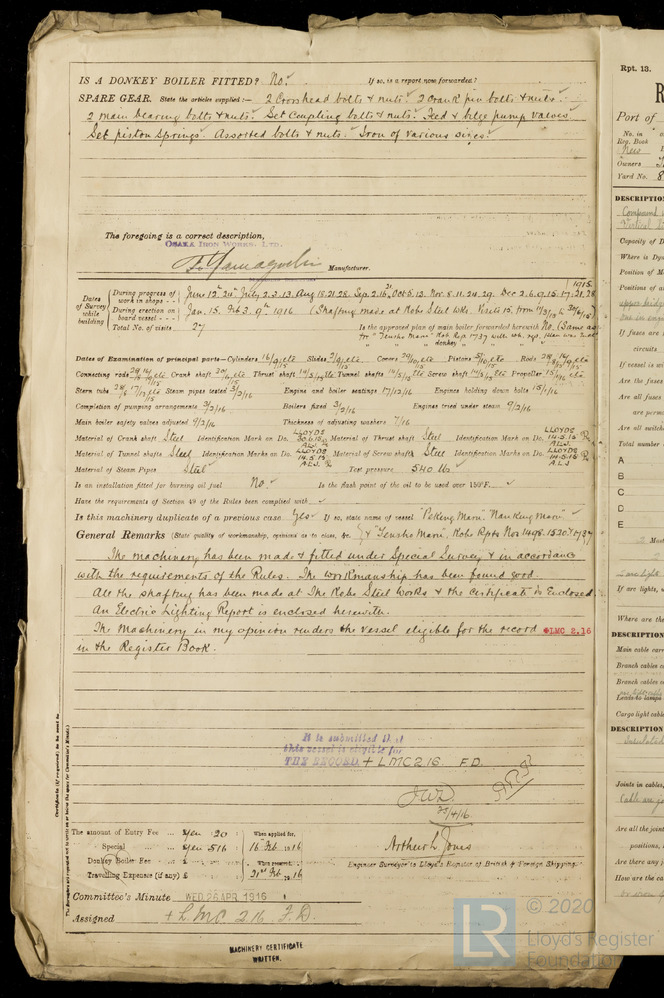 IS A DONKEY BOILER FITTED? No. If so, is a report now forwarded?
SPARE GEAR. State the articles supplied:— 2 Crosshead bolts & nuts. 2 Crank pin bolts & nuts.
2 main bearing bolts & nuts. Set Coupling bolts & nuts. Feed & bilge pump valves
Set piston springs. Assorted bolts & nuts. Iron of various sizes.
The foregoing is a correct description,
OSAKA IRON WORKS, LTD.
Manufacturer.
1915
Dates of Survey while building
During progress of work in shops - - June 12th 24th July 2. 3. 13. Aug 18. 21. 28. Sep. 2. 16. 21 Oct 5. 13. Nov. 8. 11. 24. 29. Dec 2. 6. 9. 15. 17. 21. 28
During erection on board vessel - - Jan. 15. Feb 3. 9th 1916 (Shafting made at Kobe Steel Wks. Visits 15. from
Total No. of visits 27 Is the approved plan of main boiler forwarded herewith No. (Same as
for "Tensho Maru" Kobe Rep 1737
" " " donkey " " "
Dates of Examination of principal parts—Cylinders 16/9/15 etc Slides 2/9/15 etc Covers Pistons 5/10/15 etc Rods
Connecting rods Crank shaft Thrust shaft Tunnel shafts Screw shaft Propeller
Stern tube Steam pipes tested 3/2/16 Engine and boiler seatings 17/12/15 Engines holding down bolts 15/1/16
Completion of pumping arrangements 3/2/16 Boilers fixed 3/2/16 Engines tried under steam 9/2/16
Main boiler safety valves adjusted 9/2/16 Thickness of adjusting washers 7/16
Material of Crank shaft Steel Identification Mark on Do. LLOYDS 30.6.15 A.L.J. Material of Thrust shaft Steel Identification Mark on Do. LLOYDS 14.5.15 A.L.J.
Material of Tunnel shafts Steel Identification Marks on Do. LLOYDS 14.5.15 A.L.J. Material of Screw shafts Steel Identification Marks on Do. LLOYDS 14.5.15 A.L.J
Material of Steam Pipes Steel Test pressure 540 lbs
Is an installation fitted for burning oil fuel No. Is the flash point of the oil to be used over 150°F.
Have the requirements of Section 49 of the Rules been complied with
Is this machinery duplicate of a previous case Yes If so, state name of vessel "Peking Maru", "Nanking Maru"
General Remarks (State quality of workmanship, opinions as to class, &c. & "Tensho Maru", Kobe Rpts Nos 1498. 1520 & 1737
The machinery has been made & fitted under Special Survey & in accordance
with the requirements of the Rules. The workmanship has been found good.
All the shafting has been made at The Kobe Steel Works & the certificate is enclosed.
An Electric Lighting Report is enclosed herewith.
The Machinery in my opinion renders the vessel eligible for the record LMC 2.16
in the Register Book.
It is submitted that
this vessel is eligible for
THE RECORD. + LMC 2.16 F.D.
J.W.D.
25/4/16.
The amount of Entry Fee ... Yen 20 When applied for,
Special ... Yen 516 16 Feb. 1916
Donkey Boiler Fee ... £ When received,
Travelling Expenses (if any) £ 21st Feb. 1916
Arthur L Jones
Engineer Surveyor to Lloyd's Register of British & Foreign Shipping.
Committee's Minute WED. 26 APR. 1916
Assigned + L.M.C. 2.16 F.D.
MACHINERY CERTIFICATE
WRITTEN.
Rpt. 13.
Port of
No. in
Reg. Book
New
Owners
Yard No. 8
DESCRIPTION
Compound
Vertical
Capacity of D
Where is Dy
Position of M
Position of
upper bridge
If fuses are
circuits
If vessel is wi
Are the fuses
Are all fuses
are perma
Are all switch
Total number
A
B
C
D
E
2 Mast
2 arc light
If arc lights, w
Where are the
DESCRIPTION
Main cable carr
Branch cables c
Branch cables c
Leads to lamps
Cargo light cable
DESCRIPTION
Insulated
Joints in cables,
Are all the joint
positions,
Are there any j
How are the ca
© 2020
LR
Lloyd's Register
Foundation